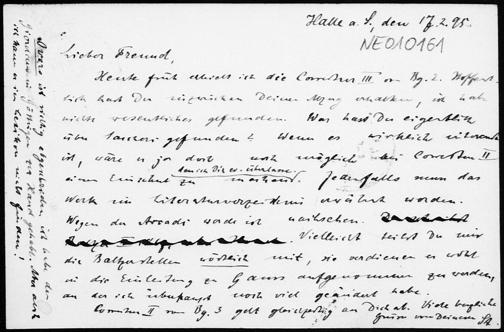 Halle a. S., den 17.2.95.
NE010161
Lieber Freund,
Heute früh erhielt ich die Correctur III von Bg. 2. Hoffent-
lich hast Du inzwischen Deinen Abzug erhalten, ich habe
nichts wesentliches gefunden. Was hast Du eigentlich
über Saccheri gefunden? Wenn es wirklich interessant
ist, wäre es ja doch noch möglich bei Correctur II
einen Einschub zu machen. Jedenfalls muss das
Werk im Literaturverzeichnis erwähnt werden.
Wegen der werde ich nachsehen.
Vielleicht teilst Du mir
die Stellen wörtlich mit, sie verdienen es wohl
in die Einleitung zu Gauss aufgenommen zu werden,
an der ich überhaupt noch viel geändert habe.
Correctur II von Bg. 3 geht gleichzeitig an Dich ab. Viele herzliche
Grüsse von Deinem St.
ist richtig abgeschrieben, ich habe den
in Göttingen zur Hand gehabt. Aber auch
ich kann es im nicht finden!